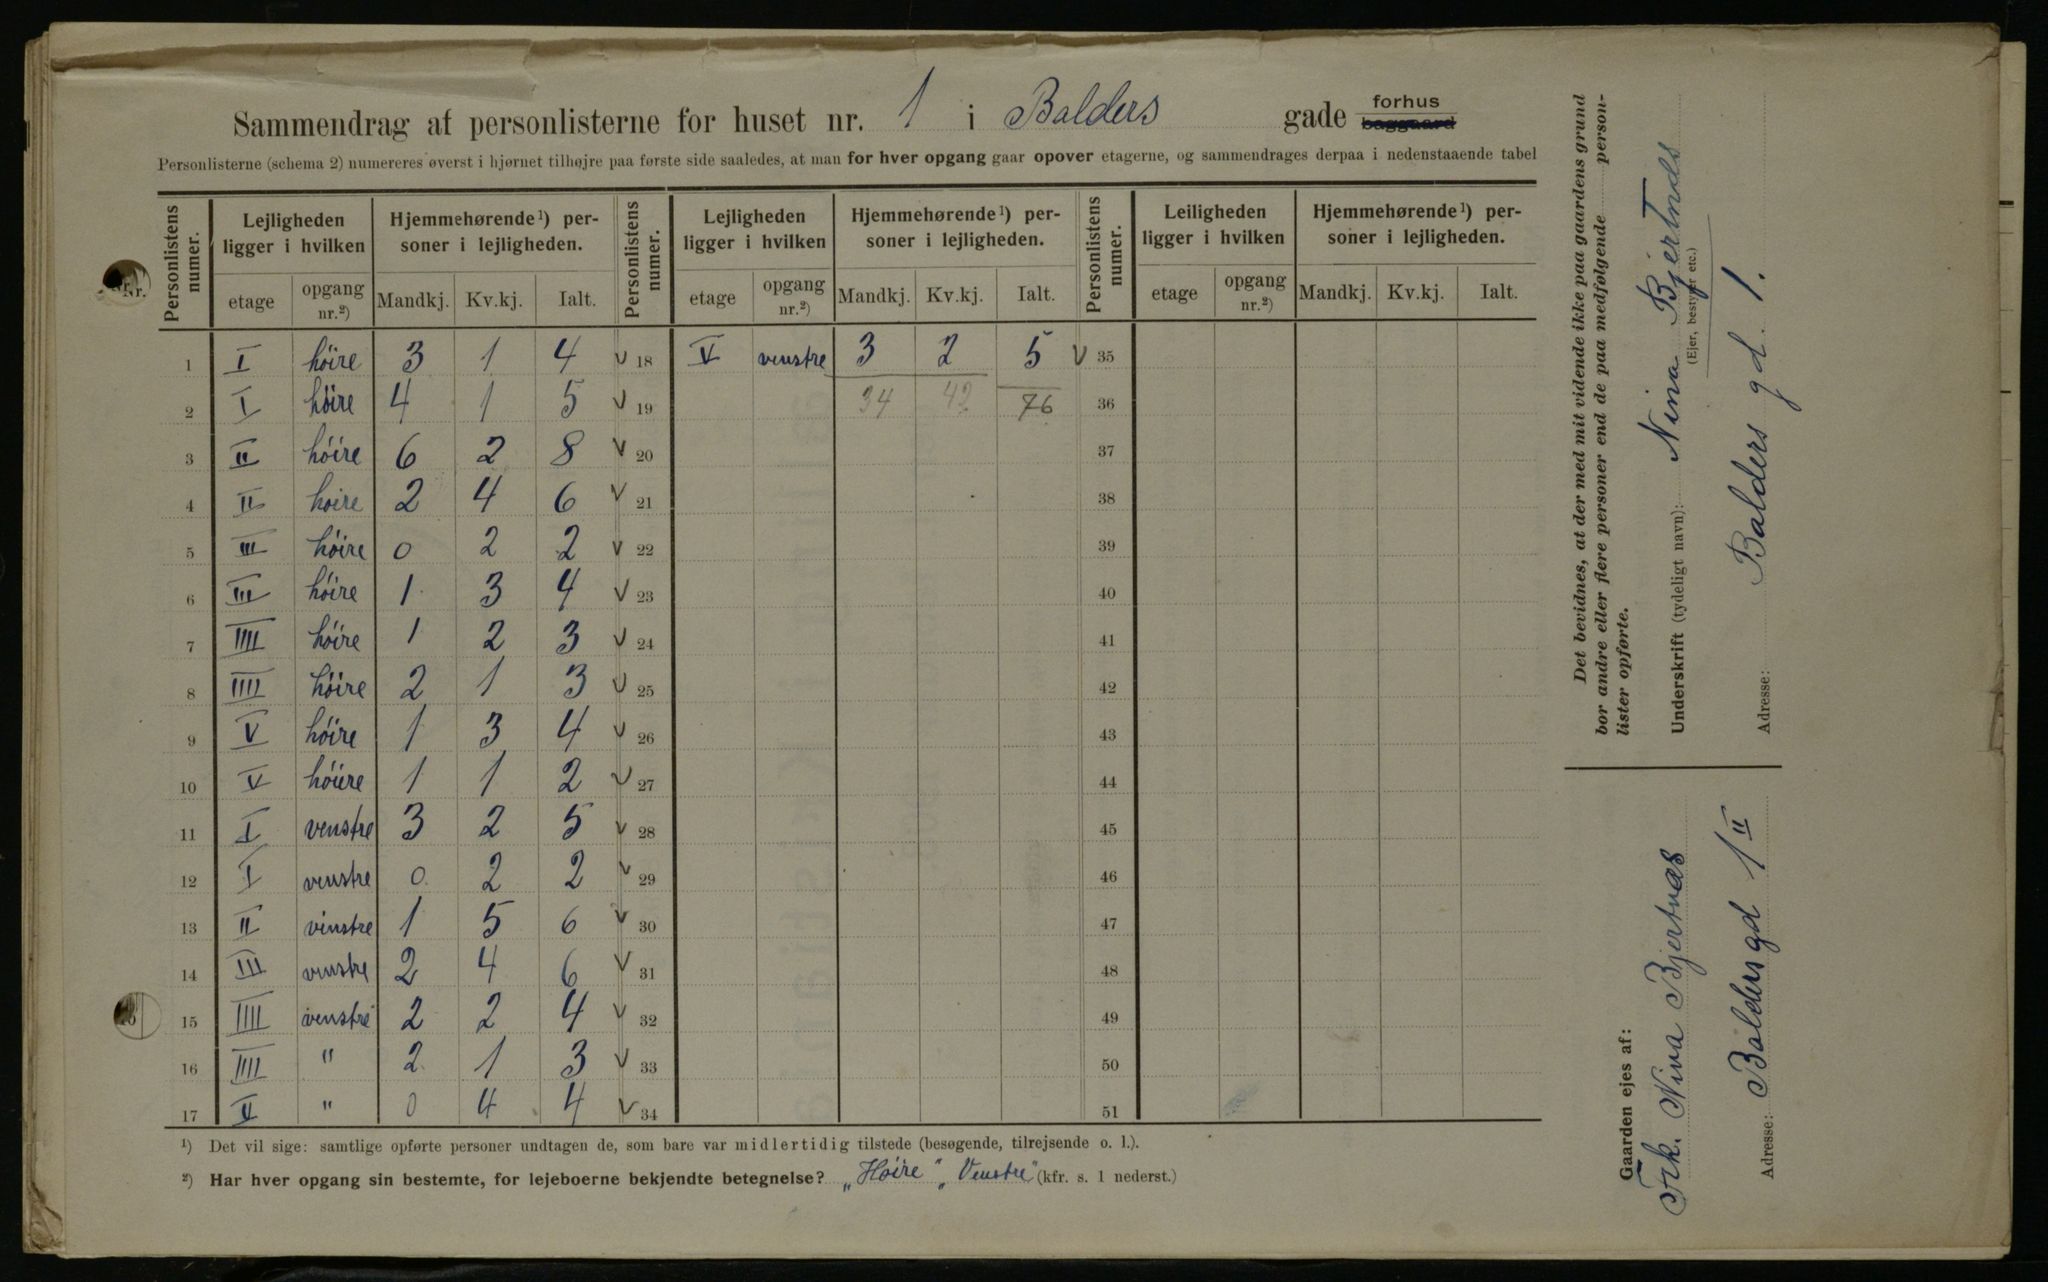 Sammendrag af personlisterne for huset nr. 1 i Balders gade forhus baggaard
Personlisterne (schema 2) numereres øverst i hjørnet tilhøjre paa første side saaledes, at man for hver opgang gaar opover etagerne, og sammendrages derpaa i nedenstaaende tabel
Personlistens numer. Lejligheden ligger i hvilken Hjemmehørende¹) personer i lejligheden. Personlistens numer. Lejligheden ligger i hvilken Hjemmehørende¹) personer i lejligheden. Personlistens numer. Leiligheden ligger i hvilken Hjemmehørende¹) personer i lejligheden.
etage opgang nr.²) Mandkj. Kv.kj. Ialt. etage opgang nr.²) Mandkj. Kv.kj. Ialt. etage opgang nr.²) Mandkj. Kv.kj. Ialt.
1 I høire 3 1 4 V 18 V venstre 3 2 5 V 35
2 I høire 4 1 5 V 19 34 42 76 36
3 II høire 6 2 8 V 20 37
4 II hoire 2 4 6 V 21 38
5 III høire 0 2 2 V 22 39
6 III høire 1 3 4 V 23 40
7 IIII høire 1 2 3 V 24 41
8 IIII høire 2 1 3 V 25 42
9 V høire 1 3 4 V 26 43
10 V høire 1 1 2 V 27 44
11 I venstre 3 2 5 V 28 45
12 I venstre 0 2 2 V 29 46
13 II vinstre 1 5 6 V 30 47
14 III venstre 2 4 6 V 31 48
15 IIII venstre 2 2 4 V 32 49
16 IIII " 2 1 3 V 33 50
17 V " 0 4 4 V 34 51
¹) Det vil sige: samtlige opførte personer undtagen de, som bare var midlertidig tilstede (besøgende, tilrejsende o. l.).
²) Har hver opgang sin bestemte, for lejeboerne bekjendte betegnelse? „Høire", „Venstre" (kfr. s. 1 nederst.)
Det bevidnes, at der med mit vidende ikke paa gaardens grund
bor andre eller flere personer end de paa medfølgende person-
lister opførte.
Underskrift (tydeligt navn): Nina Bjertnæs
(Ejer, bestyrer etc.)
Adresse: Balders gd. 1.
Gaarden ejes af:
Frk. Nina Bjertnæs
Adresse: Baldersgd 1 II